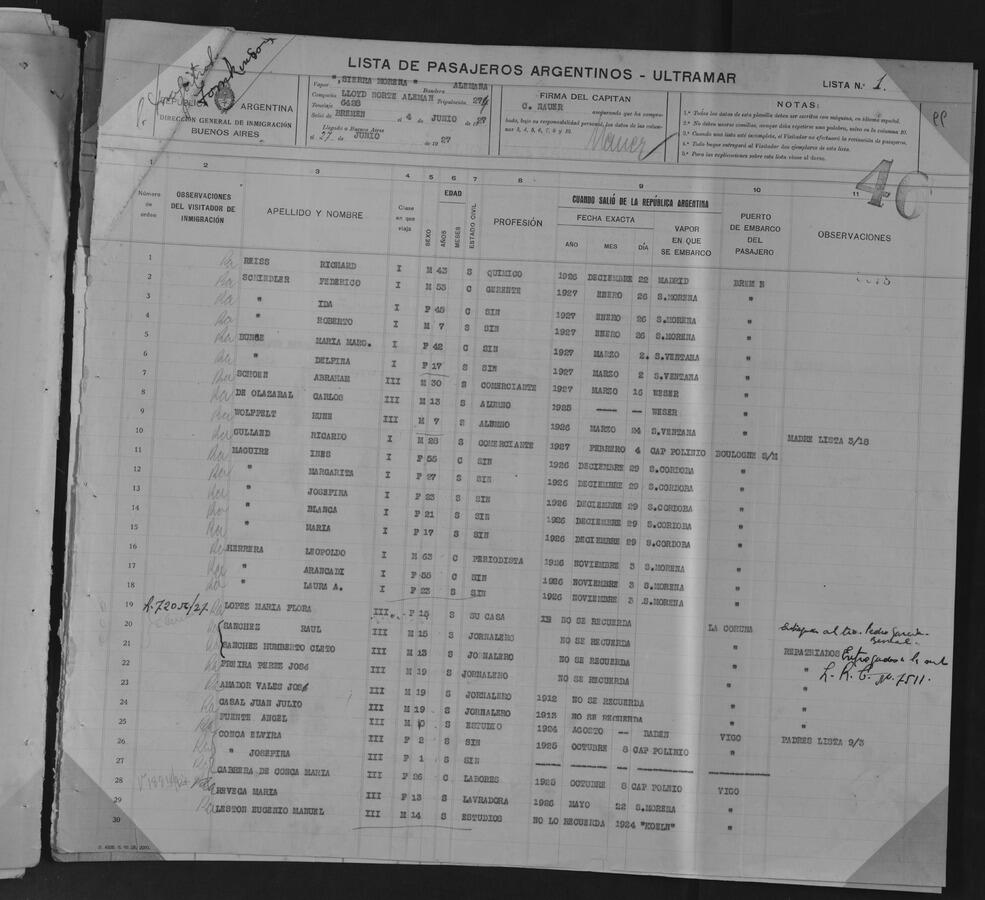 LISTA DE PASAJEROS ARGENTINOS - ULTRAMAR
LISTA N.º 1
REPÚBLICA ARGENTINA
DIRECCIÓN GENERAL DE INMIGRACIÓN
BUENOS AIRES
Vapor "SIERRA MORENA" Bandera ALEMANA
Compañía LLOYD NORTE ALEMAN Tripulación
Tonelaje 6428
Salió de BREMEN el 4 de JUNIO
Llegado a Buenos Aires
el 27 de JUNIO de 1927
FIRMA DEL CAPITAN
C. BAUER
NOTAS:
1.ª Todos los datos de esta planilla deben ser escritos con máquina, en idioma español.
3.ª Cuando una lista esté incompleta, el Visitador no efectuará la revisación de pasajeros.
4.ª Todo buque entregará al Visitador dos ejemplares de esta lista.
5.ª Para las explicaciones sobre esta lista véase al dorso.
PP
40
1 2 3 4 5 6 7 8 9 10 11
Número de orden
OBSERVACIONES DEL VISITADOR DE INMIGRACIÓN
APELLIDO Y NOMBRE
Clase en que viaja
SEXO
EDAD
AÑOS
MESES
ESTADO CIVIL
PROFESIÓN
CUANDO SALIÓ DE LA REPÚBLICA ARGENTINA
FECHA EXACTA
AÑO MES DÍA
VAPOR EN QUE SE EMBARCO
PUERTO DE EMBARCO DEL PASAJERO
OBSERVACIONES
1 REISS RICHARD I M 43 S QUIMICO 1926 DECIEMBRE 22 MADRID BREM N
2 SCHIEDLER FEDERICO I M 53 C GERENTE 1927 ENERO 26 S.MORENA "
3 " IDA I F 45 C SIN 1927 ENERO 26 S.MORENA "
4 " ROBERTO I M 7 S SIN 1927 ENERO 26 S.MORENA "
5 BUNGE MARIA MARG. I F 42 C SIN 1927 MARZO 2. S.VENTANA "
6 " DELFINA I F 17 S SIN 1927 MARZO 2 S.VENTANA "
7 SCHOEN ABRAHAM III M 30 S COMERCIANTE 1927 MARZO 16 WESER "
8 DE OLAZABAL CARLOS III M 13 S ALUMNO 1925 ---- -- WESER "
9 WOLFFELT RUNE III M 7 S ALUMNO 1926 MARZO 24 S.VENTANA " MADRE LISTA 3/18
10 GULLAND RICARDO I M 28 S COMERCIANTE 1927 FEBRERO 4 CAP POLINIO BOULOGNE S/M
11 MAGUIRE INES I F 55 C SIN 1926 DECIEMBRE 29 S.CORDOBA "
12 " MARGARITA I F 27 S SIN 1926 DECIEMBRE 29 S.CORDOBA "
13 " JOSEFINA I F 23 S SIN 1926 DECIEMBRE 29 S.CORDOBA "
14 " BLANCA I F 21 S SIN 1926 DECIEMBRE 29 S.CORDOBA "
15 " MARIA I F 17 S SIN 1926 DECIEMBRE 29 S.CORDOBA "
16 HERRERA LEOPOLDO I M 63 C PERIODISTA 1926 NOVIEMBRE 3 S.MORENA "
17 " ARANCADI I F 55 C SIN 1926 NOVIEMBRE 3 S.MORENA "
18 " LAURA A. I F 23 S SIN 1926 NOVIEMBRE 3 S.MORENA "
19 LOPEZ MARIA FLORA III F 15 S SU CASA NO SE RECUERDA LA CORUNA
20 SANCHEZ RAUL III M 15 S JORNALERO NO SE RECUERDA " REPATRIADOS
21 SANCHEZ HUMBERTO CLETO III M 13 S JORNALERO NO SE RECUERDA "
22 PREIRA PEREZ JOSÉ III M 19 S JORNALERO NO SE RECUERDA "
23 AMADOR VALES JOSÉ III M 19 S JORNALERO 1912 NO SE RECUERDA "
24 CASAL JUAN JULIO III M 19 S JORNALERO 1913 NO SE RECUERDA "
25 FUENTE ANGEL III M S ESTUDIO 1924 AGOSTO -- BADEN VIGO PADRES LISTA 9/3
26 CONCA ELVIRA III F 2 S SIN 1925 OCTUBRE 8 CAP POLINIO "
27 " JOSEFINA III F 1 S SIN
CABRERA DE CONCA MARIA III F 26 C LABORES 1925 OCTUBRE 8 CAP POLNIO VIGO
28 REVECA MARIA III F 13 S LAVRADORA 1926 MAYO 22 S.MORENA "
29 LESTON EUGENIO MANUEL III M 14 S ESTUDIOS NO LO RECUERDA 1924 "KOELN" "
30